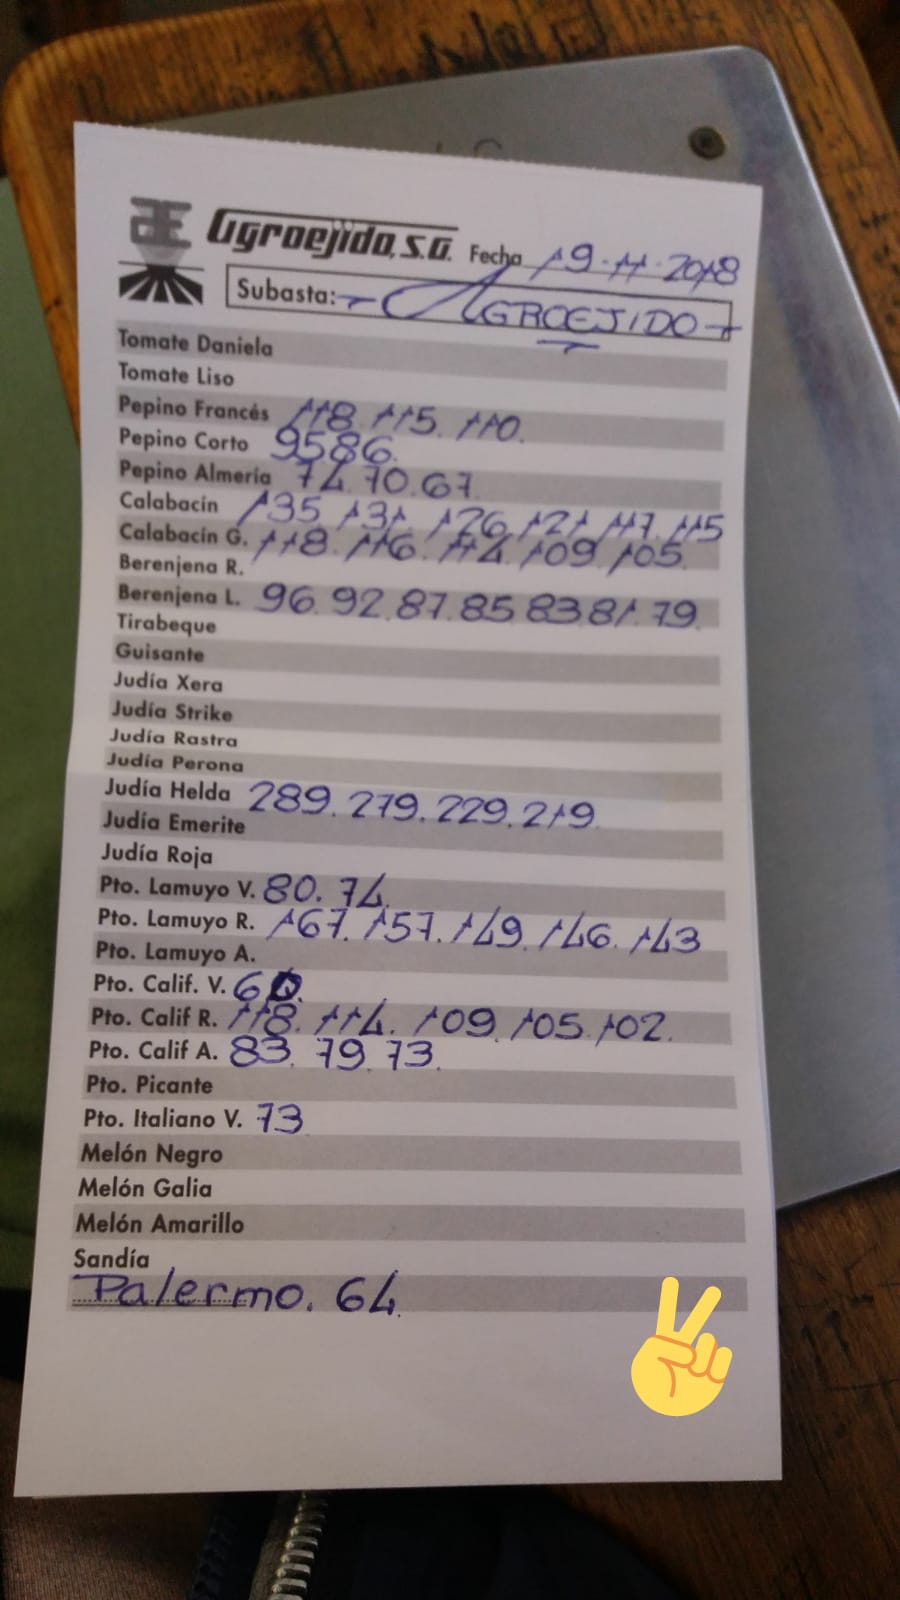 Agroejido, S.A. Fecha 19-11-2018
Subasta: - AGROEJIDO -
Tomate Daniela
Tomate Liso
Pepino Francés 118. 115. 110.
Pepino Corto 95 86.
Pepino Almería 74. 70. 67
Calabacín 135. 131. 126. 121. 117. 115
Calabacín G. 118. 116. 114. 109. 105.
Berenjena R.
Berenjena L. 96. 92. 87. 85 83 81. 79.
Tirabeque
Guisante
Judía Xera
Judía Strike
Judía Rastra
Judía Perona
Judía Helda 289. 279. 229. 219.
Judía Emerite
Judía Roja
Pto. Lamuyo V. 80. 74.
Pto. Lamuyo R. 167. 157. 149. 146. 143
Pto. Lamuyo A.
Pto. Calif. V. 60.
Pto. Calif R. 118. 114. 109. 105. 102.
Pto. Calif A. 83. 79. 73.
Pto. Picante
Pto. Italiano V. 73
Melón Negro
Melón Galia
Melón Amarillo
Sandía
Palermo. 64.